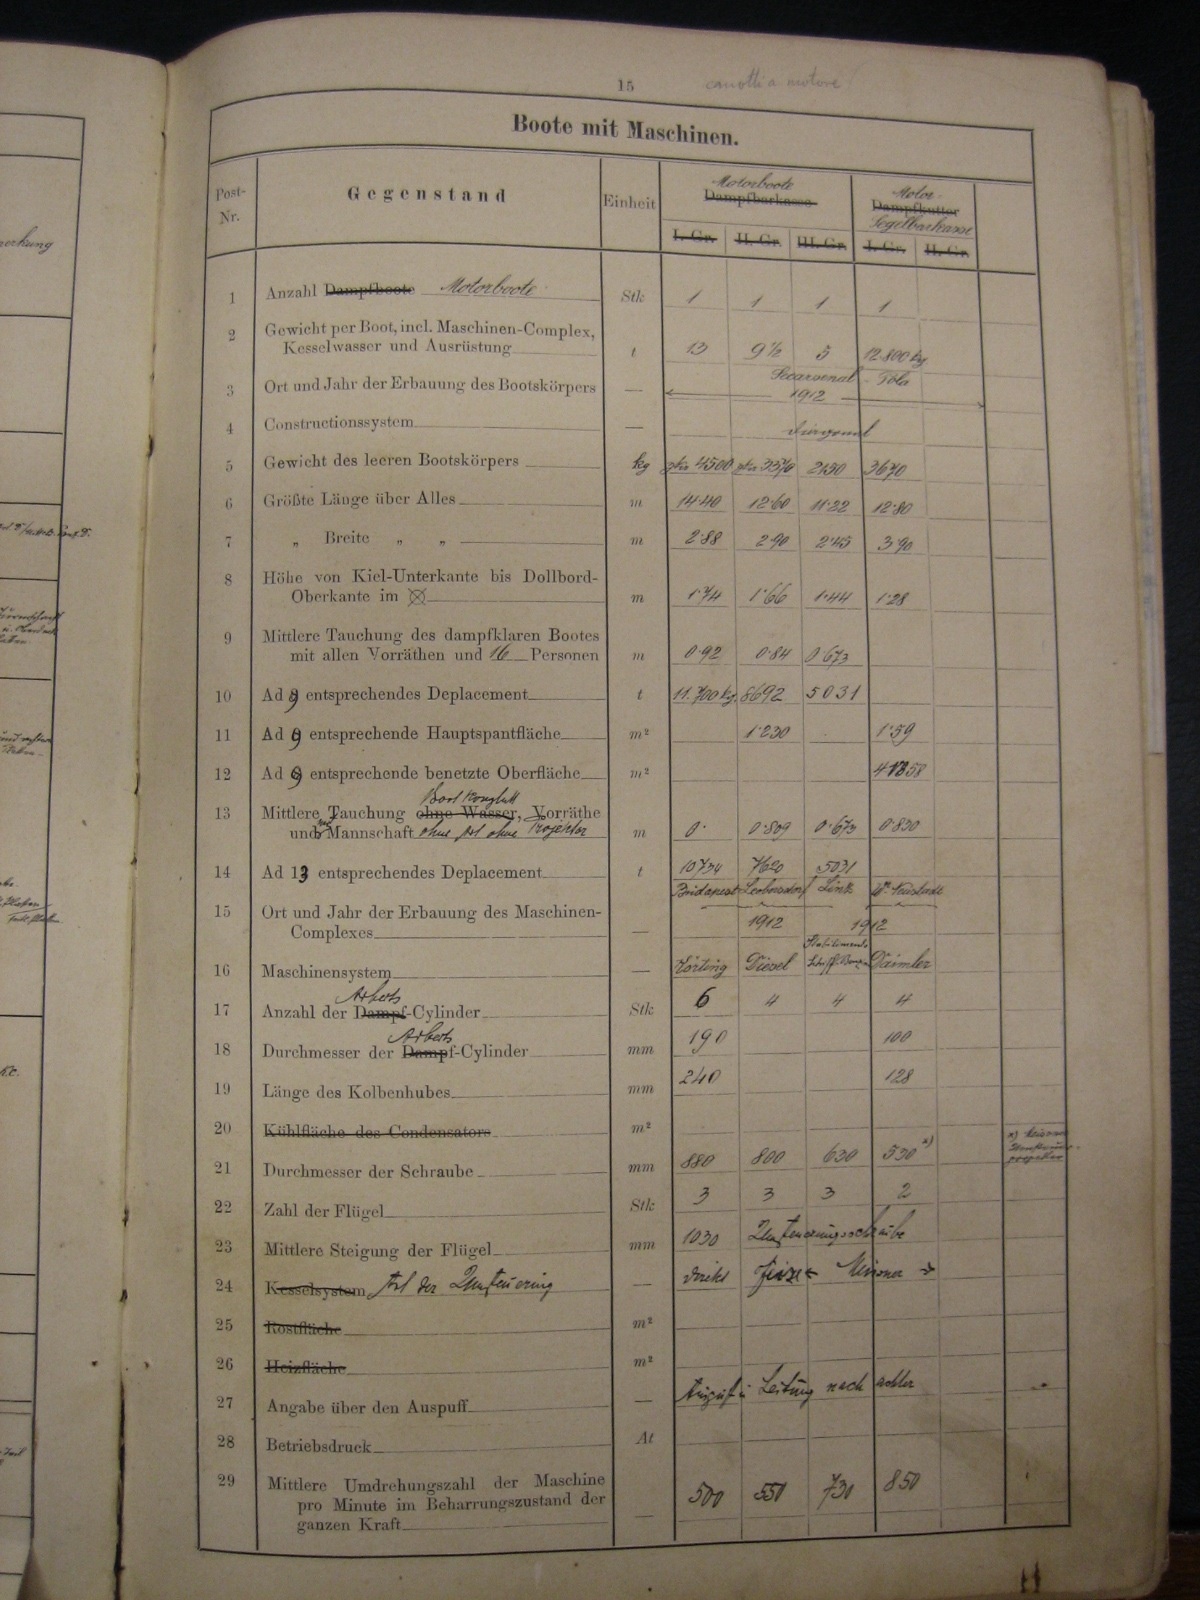 15 canotti a motore
Boote mit Maschinen.
Post-Nr. Gegenstand Einheit Motorboote Dampfbarkasse Motor- Dampfkutter Segelbarkasse
I. Gr. II. Gr. III. Gr. I. Gr. II. Gr.
1 Anzahl Dampfboote Motorboote Stk 1 1 1 1
2 Gewicht per Boot, incl. Maschinen-Complex,
Kesselwasser und Ausrüstung t 13 9½ 5 12.800 kg
Seearsenal - Pola
3 Ort und Jahr der Erbauung des Bootskörpers — 1912
4 Constructionssystem — diagonal
5 Gewicht des leeren Bootskörpers kg 4500 3370 2150 3670
6 Größte Länge über Alles m 14·40 12·60 11·22 12·80
7 „ Breite „ „ m 2·88 2·90 2·45 3·90
8 Höhe von Kiel-Unterkante bis Dollbord-
Oberkante im m 1·74 1·66 1·44 1·28
9 Mittlere Tauchung des dampfklaren Bootes
mit allen Vorräthen und 16 Personen m 0·92 0·84 0·673
10 Ad 9 entsprechendes Deplacement t 11.700 kg. 8692 5031
11 Ad 9 entsprechende Hauptspantfläche m² 1·230 1·59
12 Ad 9 entsprechende benetzte Oberfläche m²
13 Mittlere Tauchung ohne Wasser, Vorräthe
und Mannschaft ohne ohne Projektor m 0· 0·809 0·673 0·830
14 Ad 13 entsprechendes Deplacement t 10734 7620 5031
Budapest Leobersdorf Linz Wr. Neustadt
15 Ort und Jahr der Erbauung des Maschinen-
Complexes — 1912 1912
16 Maschinensystem — Körting Diesel Stabilimento Daimler
17 Anzahl der Dampf-Cylinder Arbeits Stk 6 4 4 4
18 Durchmesser der Dampf-Cylinder Arbeits mm 190 100
19 Länge des Kolbenhubes mm 240 128
20 Kühlfläche des Condensators m²
21 Durchmesser der Schraube mm 880 800 630 530 x)
x) Meissner
Umsteuer-
propeller
22 Zahl der Flügel Stk 3 3 3 2
23 Mittlere Steigung der Flügel mm 1030 Umsteuerungsschraube
24 Kesselsystem Art der Umsteuerung — direkt Meissner
25 Rostfläche m²
26 Heizfläche m²
27 Angabe über den Auspuff — Auspuff Leitung nach achter
28 Betriebsdruck At
29 Mittlere Umdrehungszahl der Maschine
pro Minute im Beharrungszustand der
ganzen Kraft — 500 550 730 850